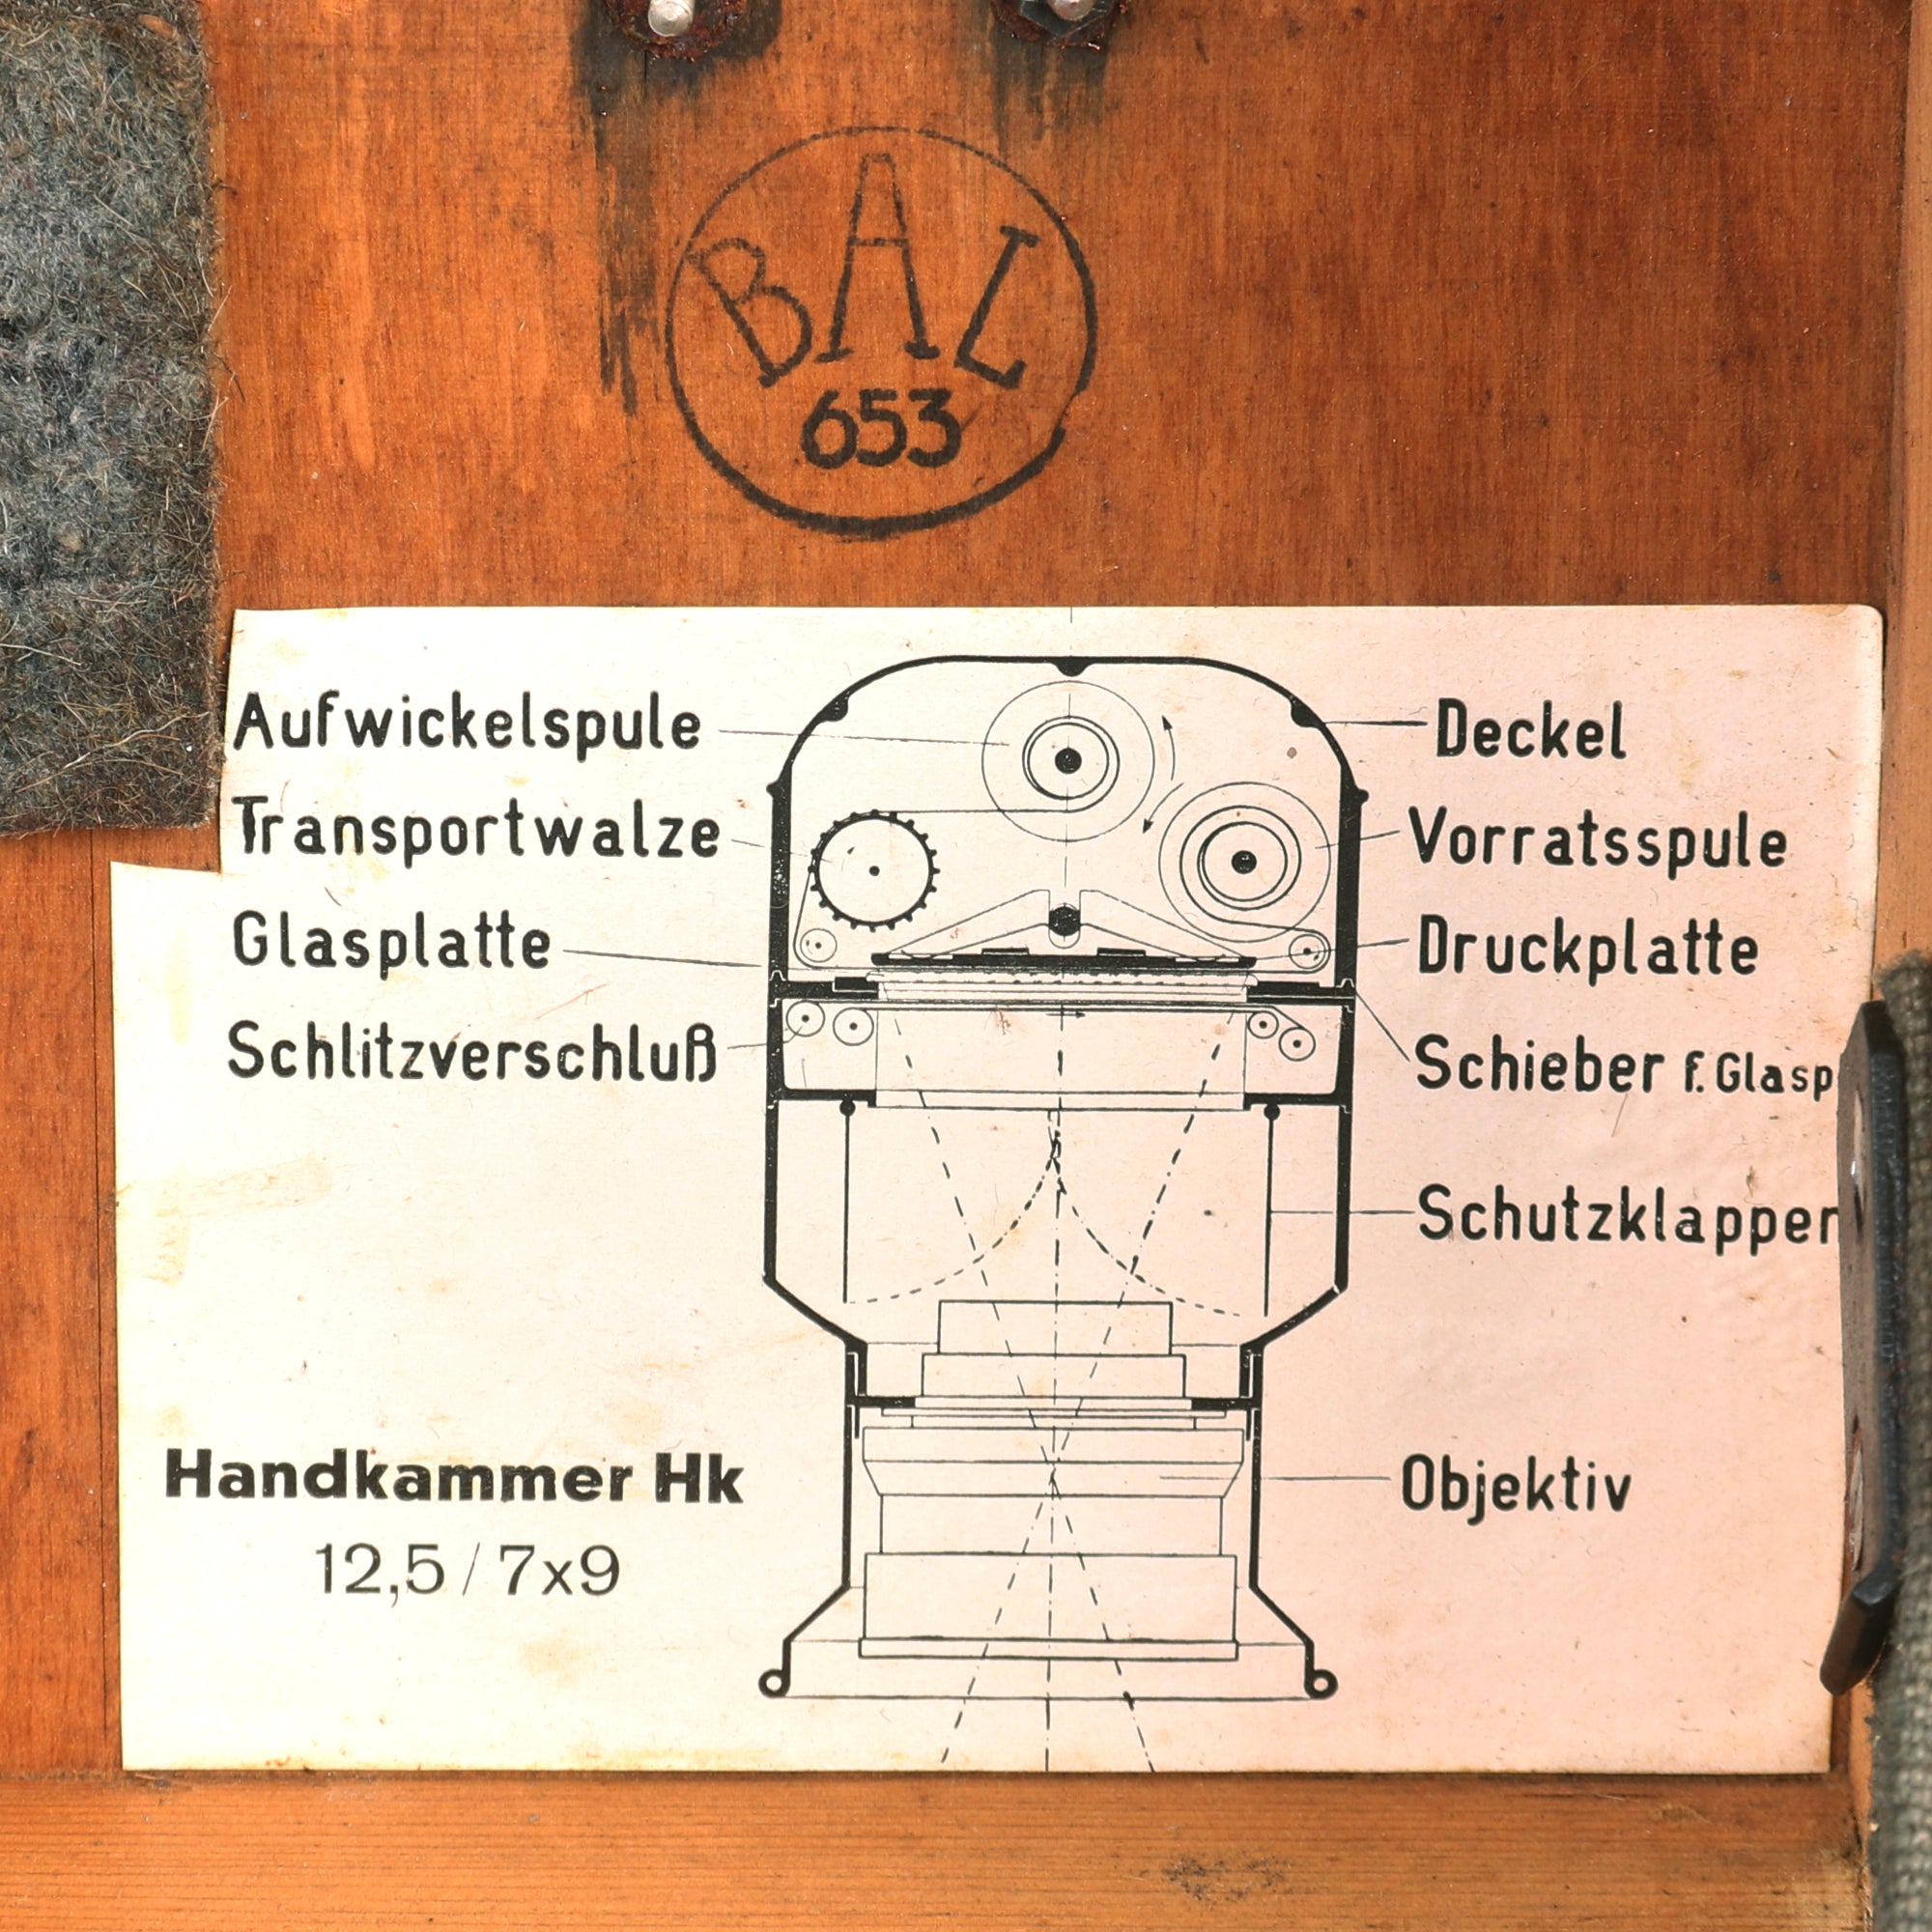 BAL
653
Aufwickelspule
Transportwalze
Glasplatte
Schlitzverschluß
Deckel
Vorratsspule
Druckplatte
Schieber f. Glasp
Schutzklappen
Objektiv
Handkammer Hk
12,5 / 7x9